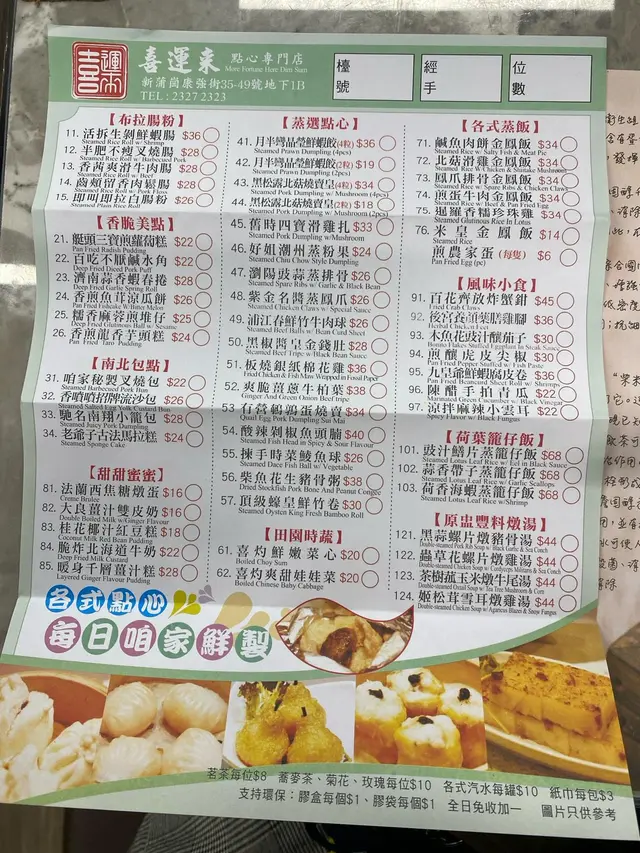 喜運來 點心專門店
More Fortune Here Dim Sum
新蒲崗康強街35-49號地下1B
TEL : 2327 2323
檯號
經手
位數
【布拉腸粉】
11. 活拆生剝鮮蝦腸 $36
Steamed Rice Roll w/ Shrimp
12. 半肥不瘦叉燒腸 $28
Steamed Rice Roll w/ Barbecued Pork
13. 香茜爽滑牛肉腸 $28
Steamed Rice Roll w/ Beef
14. 齒頰留香肉鬆腸 $28
Steamed Rice Roll w/ Pork Floss
15. 即叫即拉白腸粉 $26
Steamed Plain Rice Roll
【香脆美點】
21. 艇頭三寶煎蘿蔔糕 $22
Pan Fried Radish Pudding
22. 百吃不厭鹹水角 $22
Deep Fried Diced Pork Puff
23. 濟南蒜香蝦春捲 $28
Deep Fried Garlic Spring Roll
24. 香煎魚茸涼瓜餅 $26
25. 糯香麻蓉煎堆仔 $26
Deep Fried Glutinous Ball w/ Sesame
26. 香煎龍香芋頭糕 $24
Pan Fried Taro Pudding
【南北包點】
31. 咱家秘製叉燒包 $22
Steamed Barbecue Pork Bun
32. 香噴噴招牌流沙包 $26
Steamed Salted Egg Yolk Custard Bun
33. 馳名南翔小籠包 $28
Steamed Juicy Pork Dumpling
34. 老爺子古法馬拉糕 $24
Steamed Sponge Cake
【甜甜蜜蜜】
81. 法蘭西焦糖燉蛋 $16
Creme Brulee
82. 大良薑汁雙皮奶 $16
Double Boiled Milk w/Ginger Flavour
83. 桂花椰汁紅豆糕 $18
Coconut Milk Red Bean Pudding
84. 脆炸北海道牛奶 $22
Deep Fried Milk Custard
85. 暖身千層薑汁糕 $28
Layered Ginger Flavour Pudding
【蒸選點心】
41. 月半彎晶瑩鮮蝦餃(4粒) $36
Steamed Prawn Dumpling (4pcs)
42. 月半彎晶瑩鮮蝦餃(2粒) $19
Steamed Prawn Dumpling (2pcs)
43. 黑松露北菇燒賣皇(4粒) $34
Steamed Pork Dumpling w/ Mushroom (4pcs)
44. 黑松露北菇燒賣皇(2粒) $18
Steamed Pork Dumpling w/ Mushroom (2pcs)
45. 舊時四寶滑雞扎 $33
Steamed Pork Dumpling w/Mushroom
46. 好姐潮州蒸粉果 $24
Steamed Chiu Chow Style Dumpling
47. 瀏陽豉蒜蒸排骨 $26
Steamed Spare Ribs w/ Garlic & Black Bean
48. 紫金名醬蒸鳳爪 $26
Steamed Chicken Claws w/ Chili Sauce
49. 浦江春鮮竹牛肉球 $26
Steamed Beef Balls w/ Bean Curd Sheet
50. 黑椒醬皇金錢肚 $28
Steamed Beef Tripe w/ Black Bean Sauce
51. 板燒銀紙棉花雞 $36
Fried Chicken & Fish Maw Wrapped in Fossil Paper
52. 爽脆薑蔥牛柏葉 $38
Ginger And Green Onion Beef Tripe
53. 有營鵪鶉蛋燒賣 $34
Quail Egg Pork Dumpling Sui Mai
54. 酸辣剁椒魚頭腩 $40
Steamed Fish Head in Spicy & Sour Flavour
55. 揀手時菜鯪魚球 $26
Steamed Dace Fish Ball w/ Vegetable
56. 柴魚花生豬骨粥 $38
Dried Stockfish Pork Bone And Peanut Congee
57. 頂級蠔皇鮮竹卷 $30
Steamed Oyster King Fresh Bamboo Roll
【田園時蔬】
61. 喜灼鮮嫩菜心 $20
Boiled Choy Sum
62. 喜灼爽甜娃娃菜 $20
Boiled Chinese Baby Cabbage
【各式蒸飯】
71. 鹹魚肉餅金鳳飯 $34
Steamed Rice w/ Salty Fish & Meat Pie
72. 北菇滑雞金鳳飯 $34
Steamed Rice W/ Chicken & Shiitake Mushroom
73. 鳳爪排骨金鳳飯 $34
Steamed Rice w/ Spare Ribs & Chicken Claws
74. 煎蛋牛肉金鳳飯 $34
Steamed Rice w/ Beef & Pan Fried Egg
75. 暹羅香糯珍珠雞 $34
Steamed Glutinous Rice In Lotus
76. 米皇金鳳飯 $14
Steamed Rice
煎農家蛋(每隻) $6
Pan Fried Egg (pc)
【風味小食】
91. 百花齊放炸蟹鉗 $45
Fried Crab Claws
92. 後宮養顏藥膳雞腳 $36
Herbal Chicken Feet
93. 木魚花豉汁釀茄子 $30
Bonito Flakes Stuffed Eggplant In Steak Sauce
94. 煎釀虎皮尖椒 $30
Pan Fried Pepper Stuffed w/ Fish Paste
95. 九皇爺鮮蝦腐皮卷 $36
Pan Fried Beancurd Sheet Roll w/ Shrimps
96. 陳醋手拍青瓜 $22
Marinated Green Cucumber w/ Black Vinegar
97. 涼拌麻辣小雲耳 $22
Spicy Flavor w/ Black Fungus
【荷葉籠仔飯】
101. 豉汁鱔片蒸籠仔飯 $68
Steamed Lotus Leaf Rice w/ Eel in Black Sauce
102. 蒜香帶子蒸籠仔飯 $68
Steamed Lotus Leaf Rice w/ Garlic Scallops
103. 荷香海蝦蒸籠仔飯 $68
Steamed Lotus Leaf Rice w/Shrimp
【原盅豐料燉湯】
121. 黑蒜螺片燉豬骨湯 $44
Double-steamed Pork Rib Soup w/ Black Garlic & Sea Conch
122. 蟲草花螺片燉雞湯 $44
Double-steamed Chicken Soup w/ Cordyceps Militaris & Sea Conch
123. 茶樹菰玉米燉牛尾湯 $44
Double-steamed Oxtail Soup w/ Tea Tree Mushroom & Corn
124. 姬松茸雪耳燉雞湯 $44
Double-steamed Chicken Soup w/ Agaricus Blazei & Snow Fungus
各式點心
每日咱家鮮製
茗茶每位$8 蕎麥茶、菊花、玫瑰每位$10 各式汽水每罐$10 紙巾每包$3
支持環保：膠盒每個$1、膠袋每個$1 全日免收加一 圖片只供參考